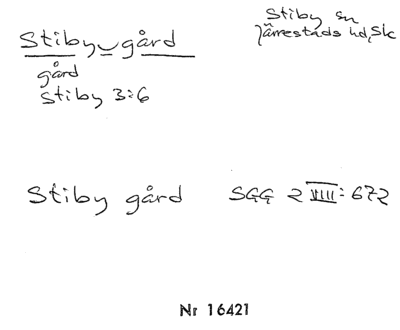 Stiby gård
Stiby sn
Järrestads hd, Sk
gård
Stiby 3:6
Stiby gård SGG 2 VIIII: 672
Nr 16421